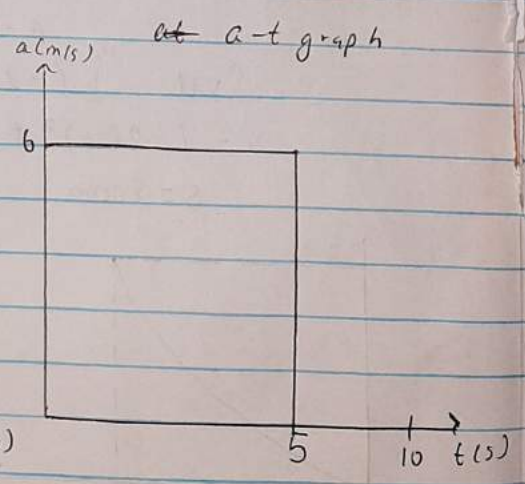 at a-t graph
a(m/s)
6
)
5
10
t(s)